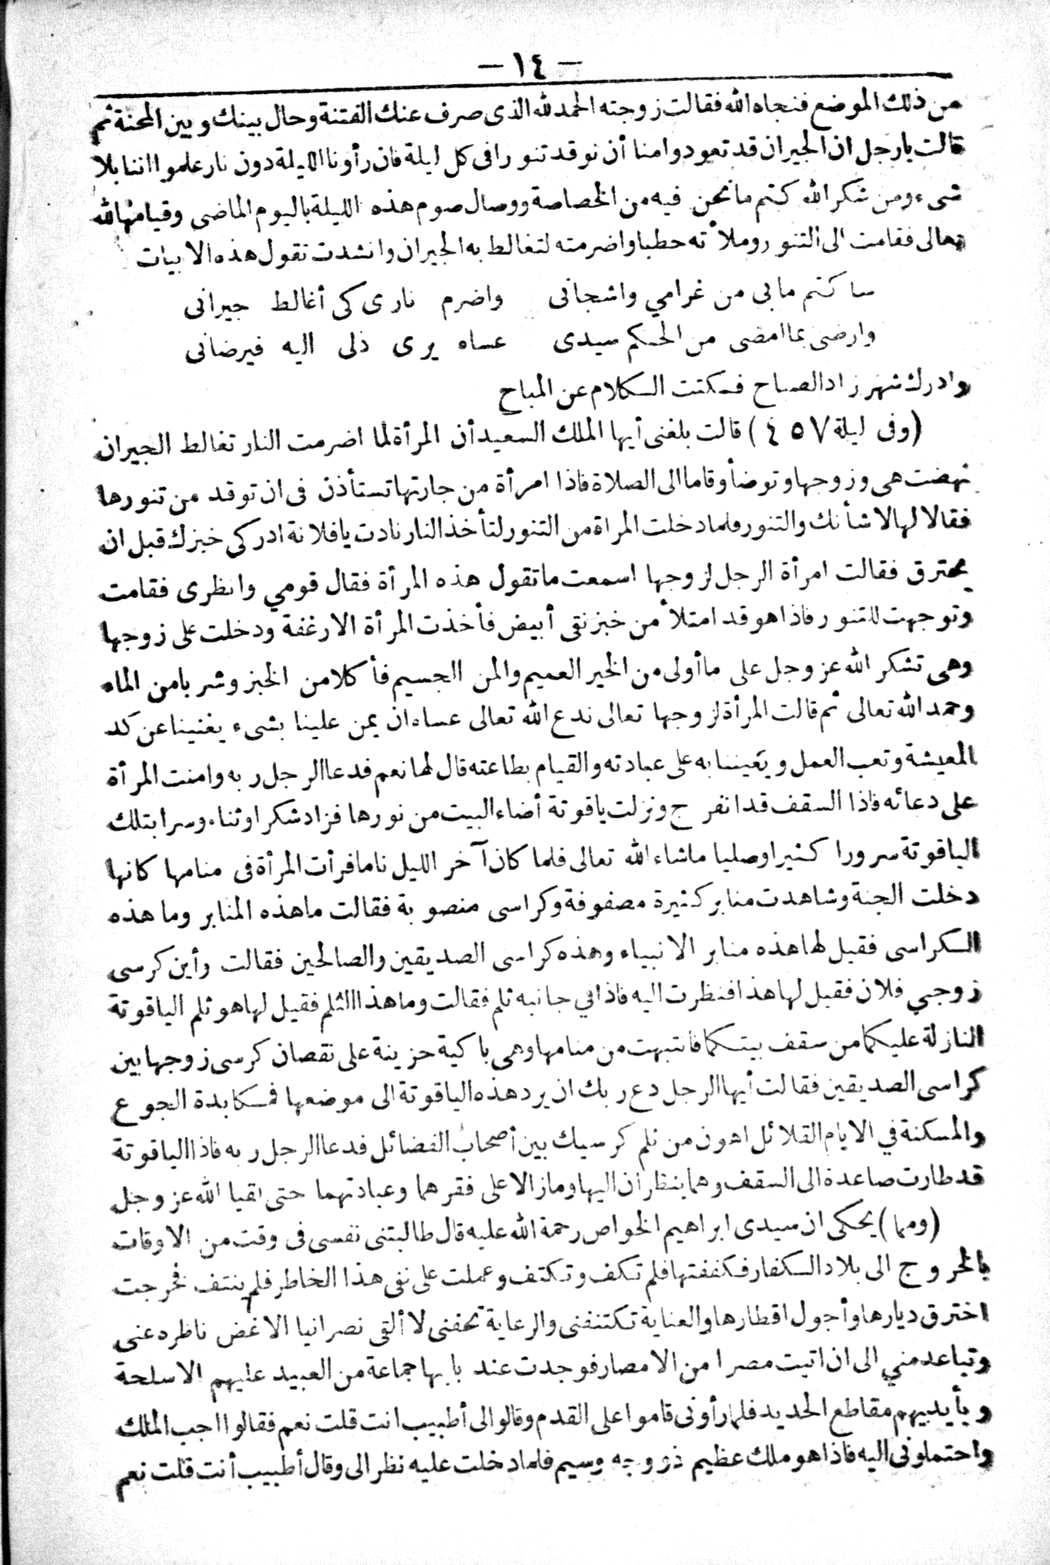 — ١٤ —
من ذلك الموضع فنجاه الله فقالت زوجته الحمد لله الذى صرف عنك الفتنة وحال بينك وبين المحنة ثم
قالت يارجل ان الجيران قد تعودوا منا أن نوقد تنورا فى كل ليلة فان رأونا الليلة دون نار علموا اننا بلا
شىء ومن شكر الله كتم ما نحن فيه من الخصاصة ووصال صوم هذه الليلة باليوم الماضى وقيامها لله
تعالى فقامت الى التنور وملأته حطبا واضرمته لتغالط به الجيران وانشدت تقول هذه الابيات
ساكتم مابى من غرامي واشجانى واضرم نارى كى أغالط جيرانى
وارضى بما امضى من الحكم سيدى عساه يرى ذلى اليه فيرضانى
وادرك شهرزاد الصباح فسكتت السكلام عن المباح
(وفى ليلة ٤٥٧) قالت بلغنى أيها الملك السعيد أن المرأة لما اضرمت النار تغالط الجيران
نهضت هى وزوجها وتوضأ وقاما الى الصلاة فاذا امرأة من جارتها تستأذن فى ان توقد من تنورها
فقالا لها لاشأنك والتنور فلما دخلت المراة من التنور لتأخذ النار نادت يافلانة ادركى خبزك قبل ان
يحترق فقالت امرأة الرجل لزوجها اسمعت ماتقول هذه المرأة فقال قومي وانظرى فقامت
وتوجهت للتنور فاذا هو قد امتلأ من خبز نقى أبيض فأخذت المرأة الارغفة ودخلت على زوجها
وهى تشكر الله عز وجل على ماأولى من الخير العميم والمن الجسيم فأكلا من الخبز وشربا من الماء
وحمد الله تعالى ثم قالت المرأة لزوجها تعالى ندع الله تعالى عساه ان يمن علينا بشىء يغنينا عن كد
المعيشة وتعب العمل ويعيننا به على عبادته والقيام بطاعته قال لها نعم فدعا الرجل ربه وامنت المرأة
على دعائه فاذا السقف قد انفرج ونزلت ياقوتة أضاء البيت من نورها فزاد شكرا وثناء وسرا بتلك
الياقوتة سرورا كثيرا وصليا ماشاء الله تعالى فلما كان آخر الليل ناما فرأت المرأة فى منامها كانها
دخلت الجنة وشاهدت منابر كثيرة مصفوفة وكراسى منصوبة فقالت ماهذه المنابر وما هذه
السكراسى فقيل لها هذه منابر الانبياء وهذه كراسى الصديقين والصالحين فقالت وأين كرسى
زوجي فلان فقيل لها هذا فنظرت اليه فاذا في جانبه ثلم فقالت وما هذا الثلم فقيل لها هو ثلم الياقوتة
النازلة عليكما من سقف بيتكما فانتبهت من منامها وهى باكية حزينة على نقصان كرسى زوجها بين
كراسى الصديقين فقالت أيها الرجل دع ربك ان يرد هذه الياقوتة الى موضعها فمكابدة الجوع
والمسكنة في الايام القلائل اهون من ثلم كرسيك بين أصحاب الفضائل فدعا الرجل ربه فاذا الياقوتة
قد طارت صاعدة الى السقف وهما ينظران اليها ومازالا على فقرهما وعبادتهما حتى لقيا الله عز وجل
(ومما) يحكى ان سيدى ابراهيم الخواص رحمة الله عليه قال طالبتنى نفسى فى وقت من الاوقات
بالخروج الى بلاد السكفار فكففتها فلم تكف وتكتف وعملت على نفى هذا الخاطر فلم ينتف فخرجت
اخترق ديارها وأجول اقطارها والعناية تكتنفنى والرعاية تحفنى لا ألقى نصرانيا الا غض ناظره عنى
وتباعد مني الى ان اتيت مصرا من الامصار فوجدت عند بابها جماعة من العبيد عليهم الاسلحة
وبأيديهم مقاطع الحديد فلما رأونى قاموا على القدم وقالوا لى أطبيب انت قلت نعم فقالوا اجب الملك
واحتملونى اليه فاذا هو ملك عظيم ذو وجه وسيم فلما دخلت عليه نظر الى وقال أطبيب أنت قلت نعم